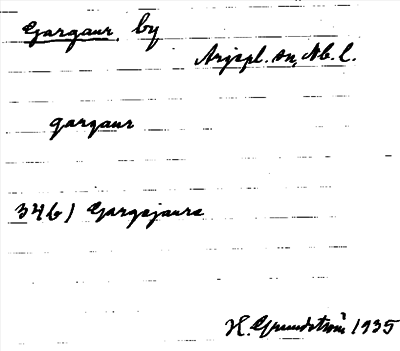 Gargaur by
Arjepl. sn, Nb. l.
gargaur
346 / Gargejaure
H. Grundström 1935